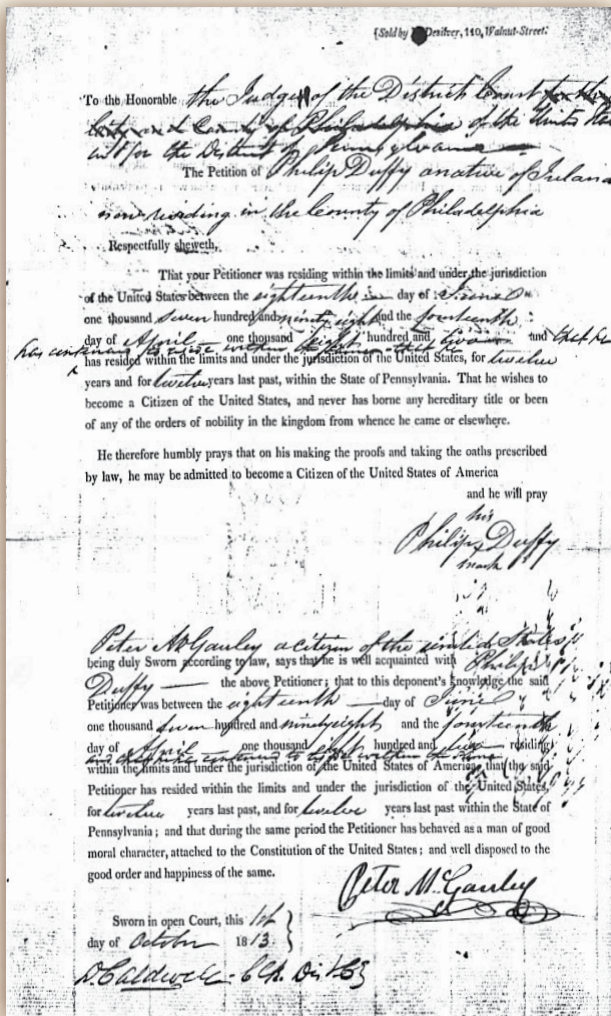 {Sold by Desilver, 110, Walnut-Street.
To the Honorable the Judge of the District Court for the
City and County of Philadelphia of the United Sta
and for the District of Pennsylvania
The Petition of Philip Duffy a native of Ireland
now residing in the County of Philadelphia
Respectfully sheweth,
That your Petitioner was residing within the limits and under the jurisdiction
of the United States between the eighteenth day of June
one thousand seven hundred and ninety eight and the fourteenth
day of April one thousand eight hundred and two and that he
has continued to reside within the same
has resided within the limits and under the jurisdiction of the United States, for twelve
years and for twelve years last past, within the State of Pennsylvania. That he wishes to
become a Citizen of the United States, and never has borne any hereditary title or been
of any of the orders of nobility in the kingdom from whence he came or elsewhere.
He therefore humbly prays that on his making the proofs and taking the oaths prescribed
by law, he may be admitted to become a Citizen of the United States of America
and he will pray
his
Philip Duffy
mark
Peter McGauley a citizen of the united States
being duly Sworn according to law, says that he is well acquainted with Philip
Duffy the above Petitioner; that to this deponent's knowledge the said
Petitioner was between the eighteenth day of June
one thousand seven hundred and ninety eight and the fourteenth
day of April one thousand eight hundred and two residing
and has continued to reside within the same
within the limits and under the jurisdiction of the United States of America, that the said
Petitioner has resided within the limits and under the jurisdiction of the United States,
for twelve years last past, and for twelve years last past within the State of
Pennsylvania; and that during the same period the Petitioner has behaved as a man of good
moral character, attached to the Constitution of the United States; and well disposed to the
good order and happiness of the same.
Peter McGauley
Sworn in open Court, this 1st
day of October 1813.
D. Caldwell Clk. Dis Ct